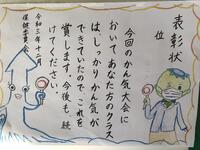 表彰状
位
今回のかん気大会に
おいて、あなた方のクラス
は、しっかりかん気が
できていたので、これを
賞します。今後も続
けてください。
令和三年十二月
保健委員会